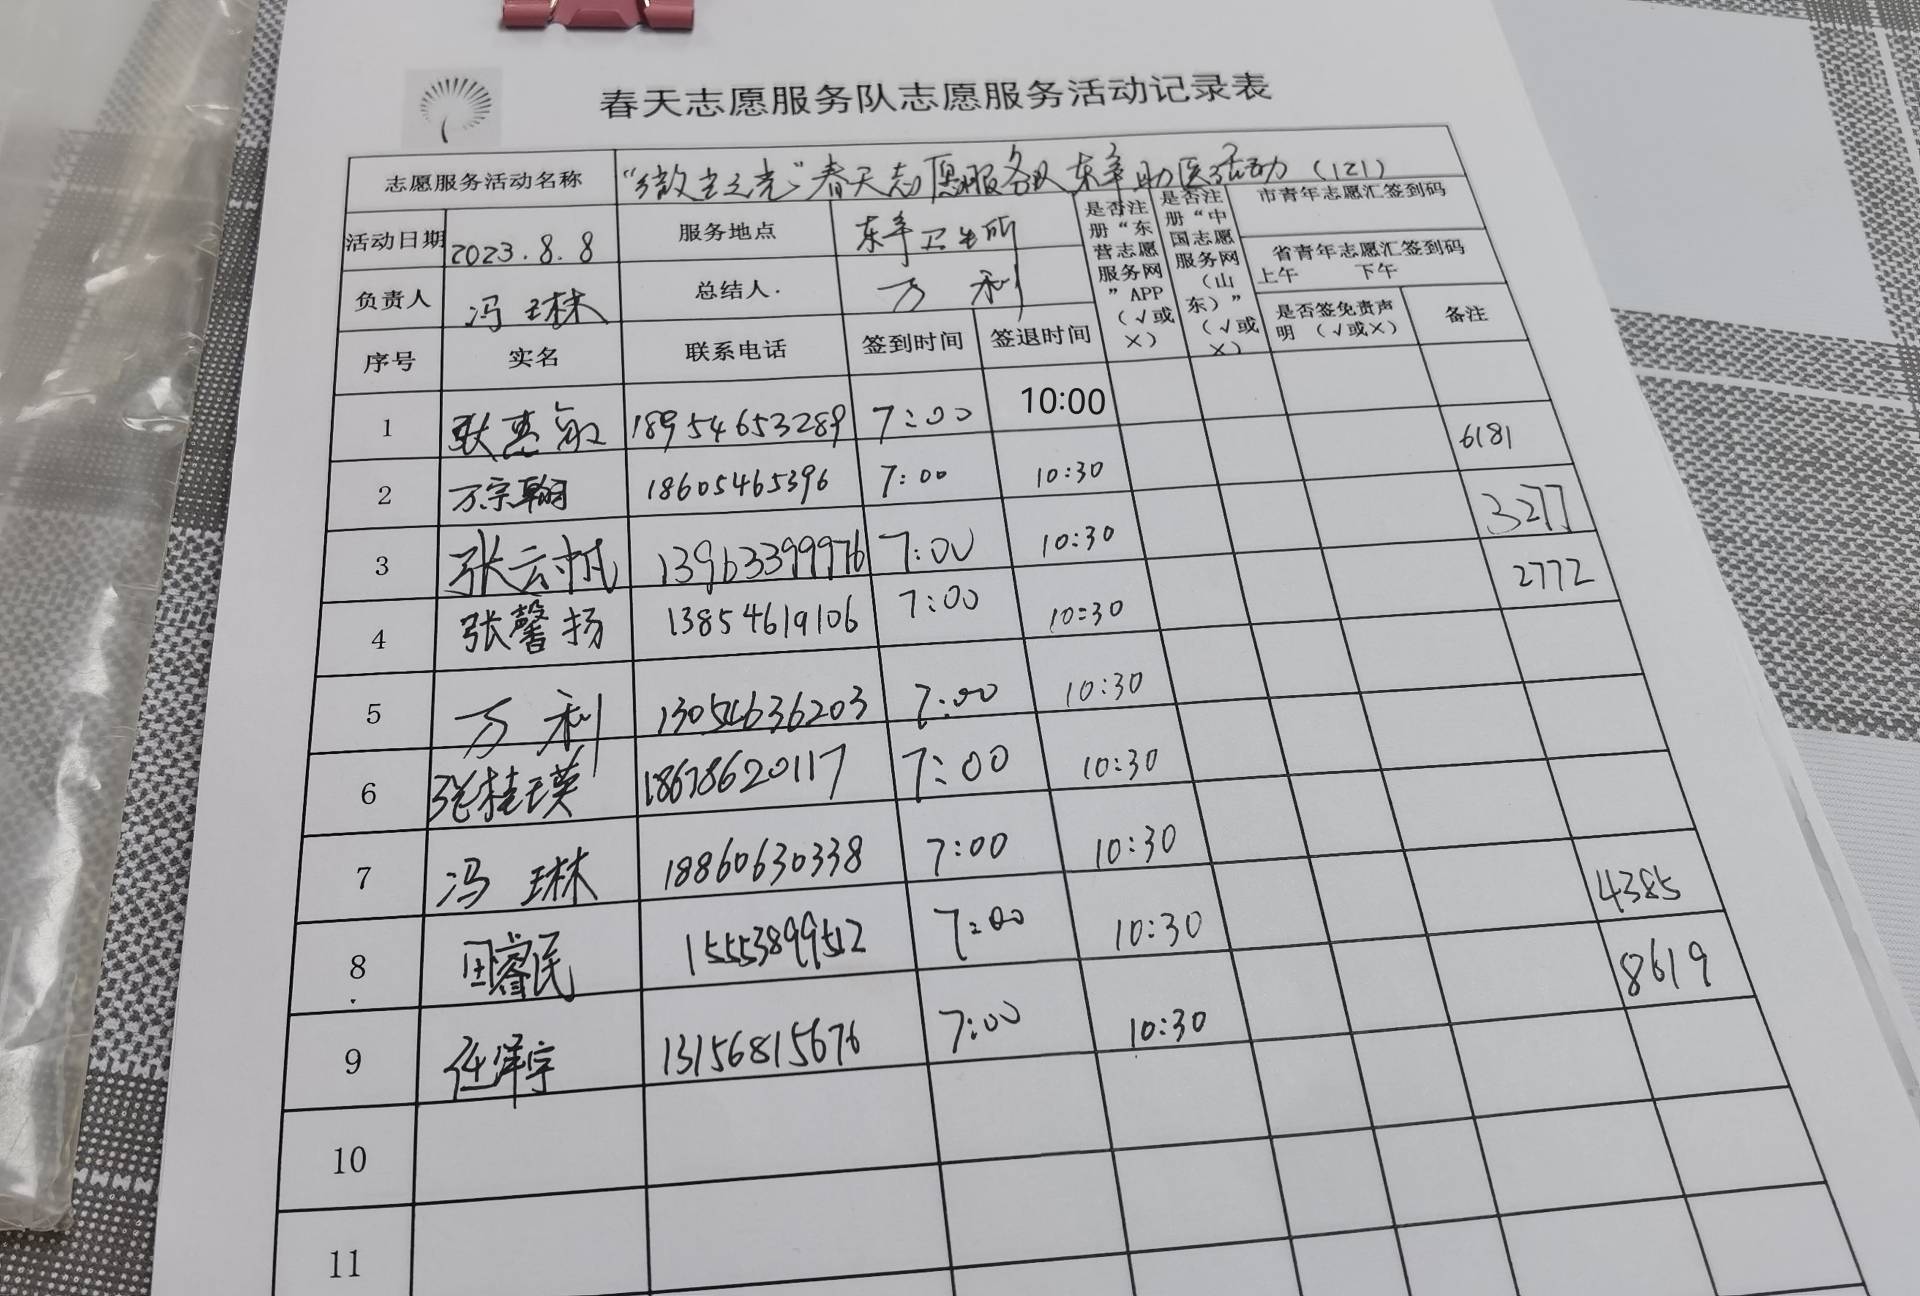 春天志愿服务队志愿服务活动记录表
志愿服务活动名称 “微尘之光”春天志愿服务队东辛助医活动（121）
活动日期 2023.8.8 服务地点 东辛卫生所
负责人 冯琳 总结人. 万利
是否注册“东营志愿服务网”APP（√或×）
是否注册“中国志愿服务网（山东）”（√或×）
市青年志愿汇签到码
省青年志愿汇签到码
上午 下午
序号 实名 联系电话 签到时间 签退时间 是否签免责声明（√或×） 备注
1 耿惠敏 18954653289 7:00 10:00
2 万宗翰 18605465396 7:00 10:30 6181
3 张云帆 13963399976 7:00 10:30 3277
4 张馨扬 13854619106 7:00 10:30 2772
5 万利 13054636203 7:00 10:30
6 张桂瑛 18678620117 7:00 10:30
7 冯琳 18860630338 7:00 10:30
8 田睿民 15553899512 7:00 10:30 4385
9 任泽宇 13156815676 7:00 10:30 8619
10
11